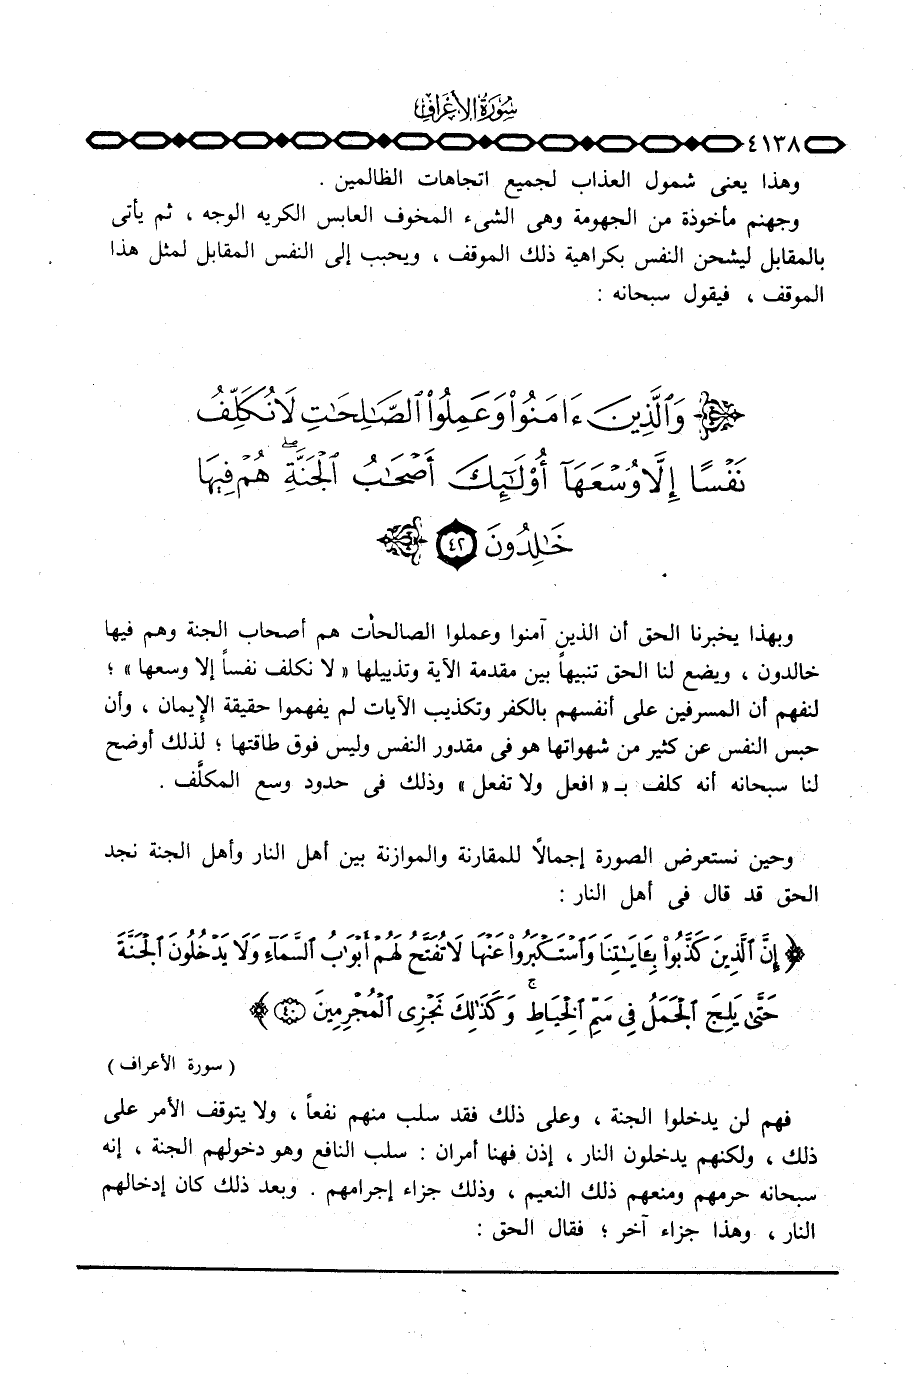 سُورَةُ الأَعْرَافِ
٤١٣٨
وهذا يعنى شمول العذاب لجميع اتجاهات الظالمين .
وجهنم مأخوذة من الجهومة وهى الشىء المخوف العابس الكريه الوجه ، ثم يأتى
بالمقابل ليشحن النفس بكراهية ذلك الموقف ، ويحبب إلى النفس المقابل لمثل هذا
الموقف ، فيقول سبحانه :
﴿ وَٱلَّذِينَ ءَامَنُوا۟ وَعَمِلُوا۟ ٱلصَّٰلِحَٰتِ لَا نُكَلِّفُ
نَفْسًا إِلَّا وُسْعَهَآ أُو۟لَٰٓئِكَ أَصْحَٰبُ ٱلْجَنَّةِ ۖ هُمْ فِيهَا
خَٰلِدُونَ ٤٢ ﴾
وبهذا يخبرنا الحق أن الذين آمنوا وعملوا الصالحات هم أصحاب الجنة وهم فيها
خالدون ، ويضع لنا الحق تنبيهاً بين مقدمة الآية وتذييلها « لا نكلف نفساً إلا وسعها » ؛
لنفهم أن المسرفين على أنفسهم بالكفر وتكذيب الآيات لم يفهموا حقيقة الإيمان ، وأن
حبس النفس عن كثير من شهواتها هو فى مقدور النفس وليس فوق طاقتها ؛ لذلك أوضح
لنا سبحانه أنه كلف بـ « افعل ولا تفعل » وذلك فى حدود وسع المكلَّف .
وحين نستعرض الصورة إجمالاً للمقارنة والموازنة بين أهل النار وأهل الجنة نجد
الحق قد قال فى أهل النار :
﴿ إِنَّ ٱلَّذِينَ كَذَّبُوا۟ بِـَٔايَٰتِنَا وَٱسْتَكْبَرُوا۟ عَنْهَا لَا تُفَتَّحُ لَهُمْ أَبْوَٰبُ ٱلسَّمَآءِ وَلَا يَدْخُلُونَ ٱلْجَنَّةَ
حَتَّىٰ يَلِجَ ٱلْجَمَلُ فِى سَمِّ ٱلْخِيَاطِ ۚ وَكَذَٰلِكَ نَجْزِى ٱلْمُجْرِمِينَ ٤٠ ﴾
( سورة الأعراف )
فهم لن يدخلوا الجنة ، وعلى ذلك فقد سلب منهم نفعاً ، ولا يتوقف الأمر على
ذلك ، ولكنهم يدخلون النار ، إذن فهنا أمران : سلب النافع وهو دخولهم الجنة ، إنه
سبحانه حرمهم ومنعهم ذلك النعيم ، وذلك جزاء إجرامهم . وبعد ذلك كان إدخالهم
النار ، وهذا جزاء آخر ؛ فقال الحق :